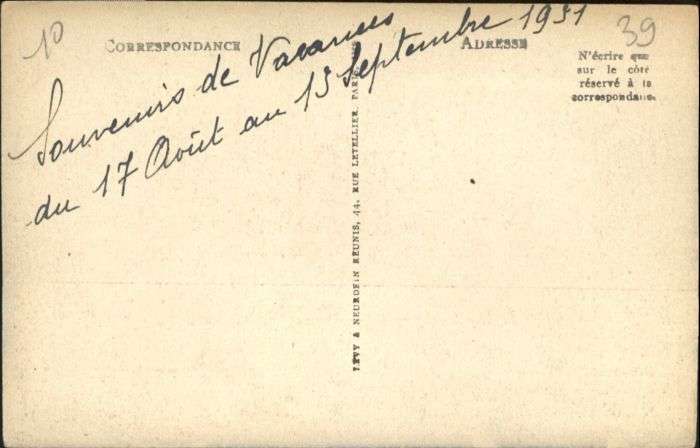 10
CORRESPONDANCE
ADRESSE
39
N'écrire que
sur le côté
réservé à la
correspondance
Souvenirs de Vacances
du 17 Août au 15 Septembre 1931
LÉVY & NEURDEIN RÉUNIS, 44, RUE LETELLIER, PARIS